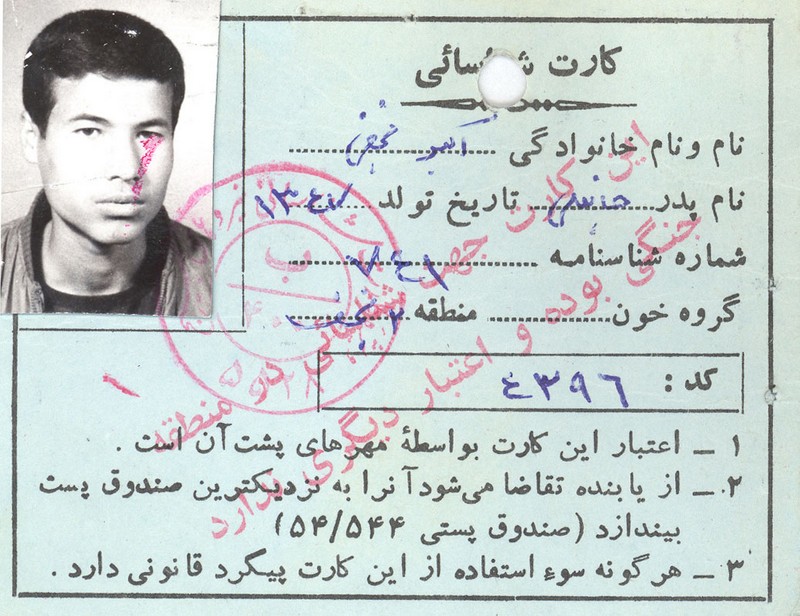 کارت شناسائی
نام ونام خانوادگی اکبر نجفی
نام پدر تاریخ تولد ۱۳۴۰
شماره شناسنامه
گروه خون منطقه ۲
کد : ۴۳۹۶
۱ ــ اعتبار این کارت بواسطهٔ مهرهای پشت آن است .
۲ ــ از یابنده تقاضا می‌شود آنرا به نزدیکترین صندوق پست
بیندازد (صندوق پستی ۵۴/۵۴۴)
۳ ــ هرگونه سوء استفاده از این کارت پیگرد قانونی دارد .
این کارت جهت شناسائی در منطقه
جنگی بوده و اعتبار دیگری ندارد